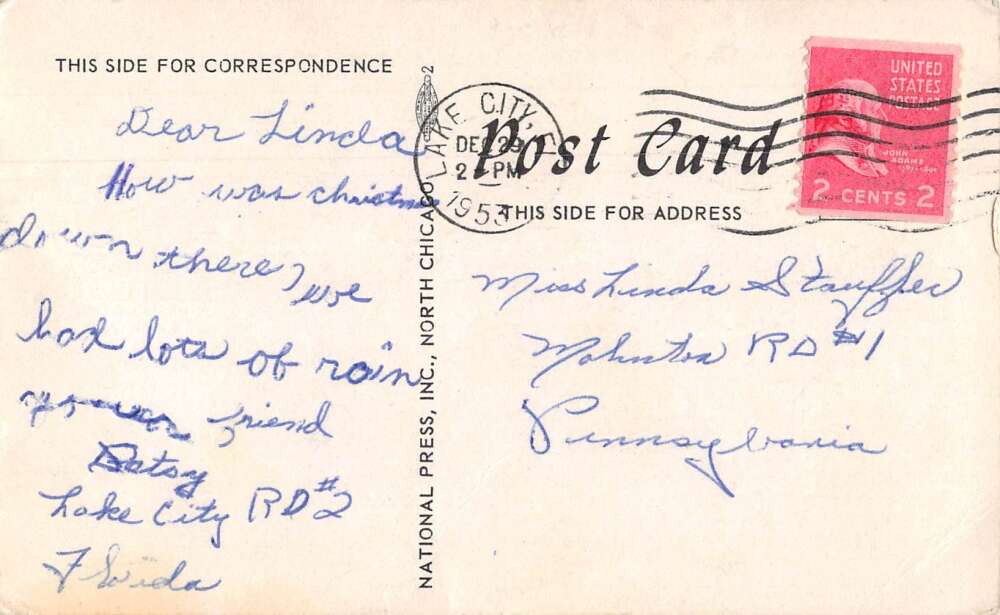 THIS SIDE FOR CORRESPONDENCE
Dear Linda
How was christmas
down there, we
had lots of rain
your friend
Betsy
Lake City RD #2
Florida
NATIONAL PRESS, INC., NORTH CHICAGO
2
LAKE CITY, F
DEC 29
2 PM
1953
Post Card
THIS SIDE FOR ADDRESS
UNITED
STATES
POSTAGE
JOHN
ADAMS
2 CENTS 2
Miss Linda Stauffer
Mohnton RD #1
Pennsylvania